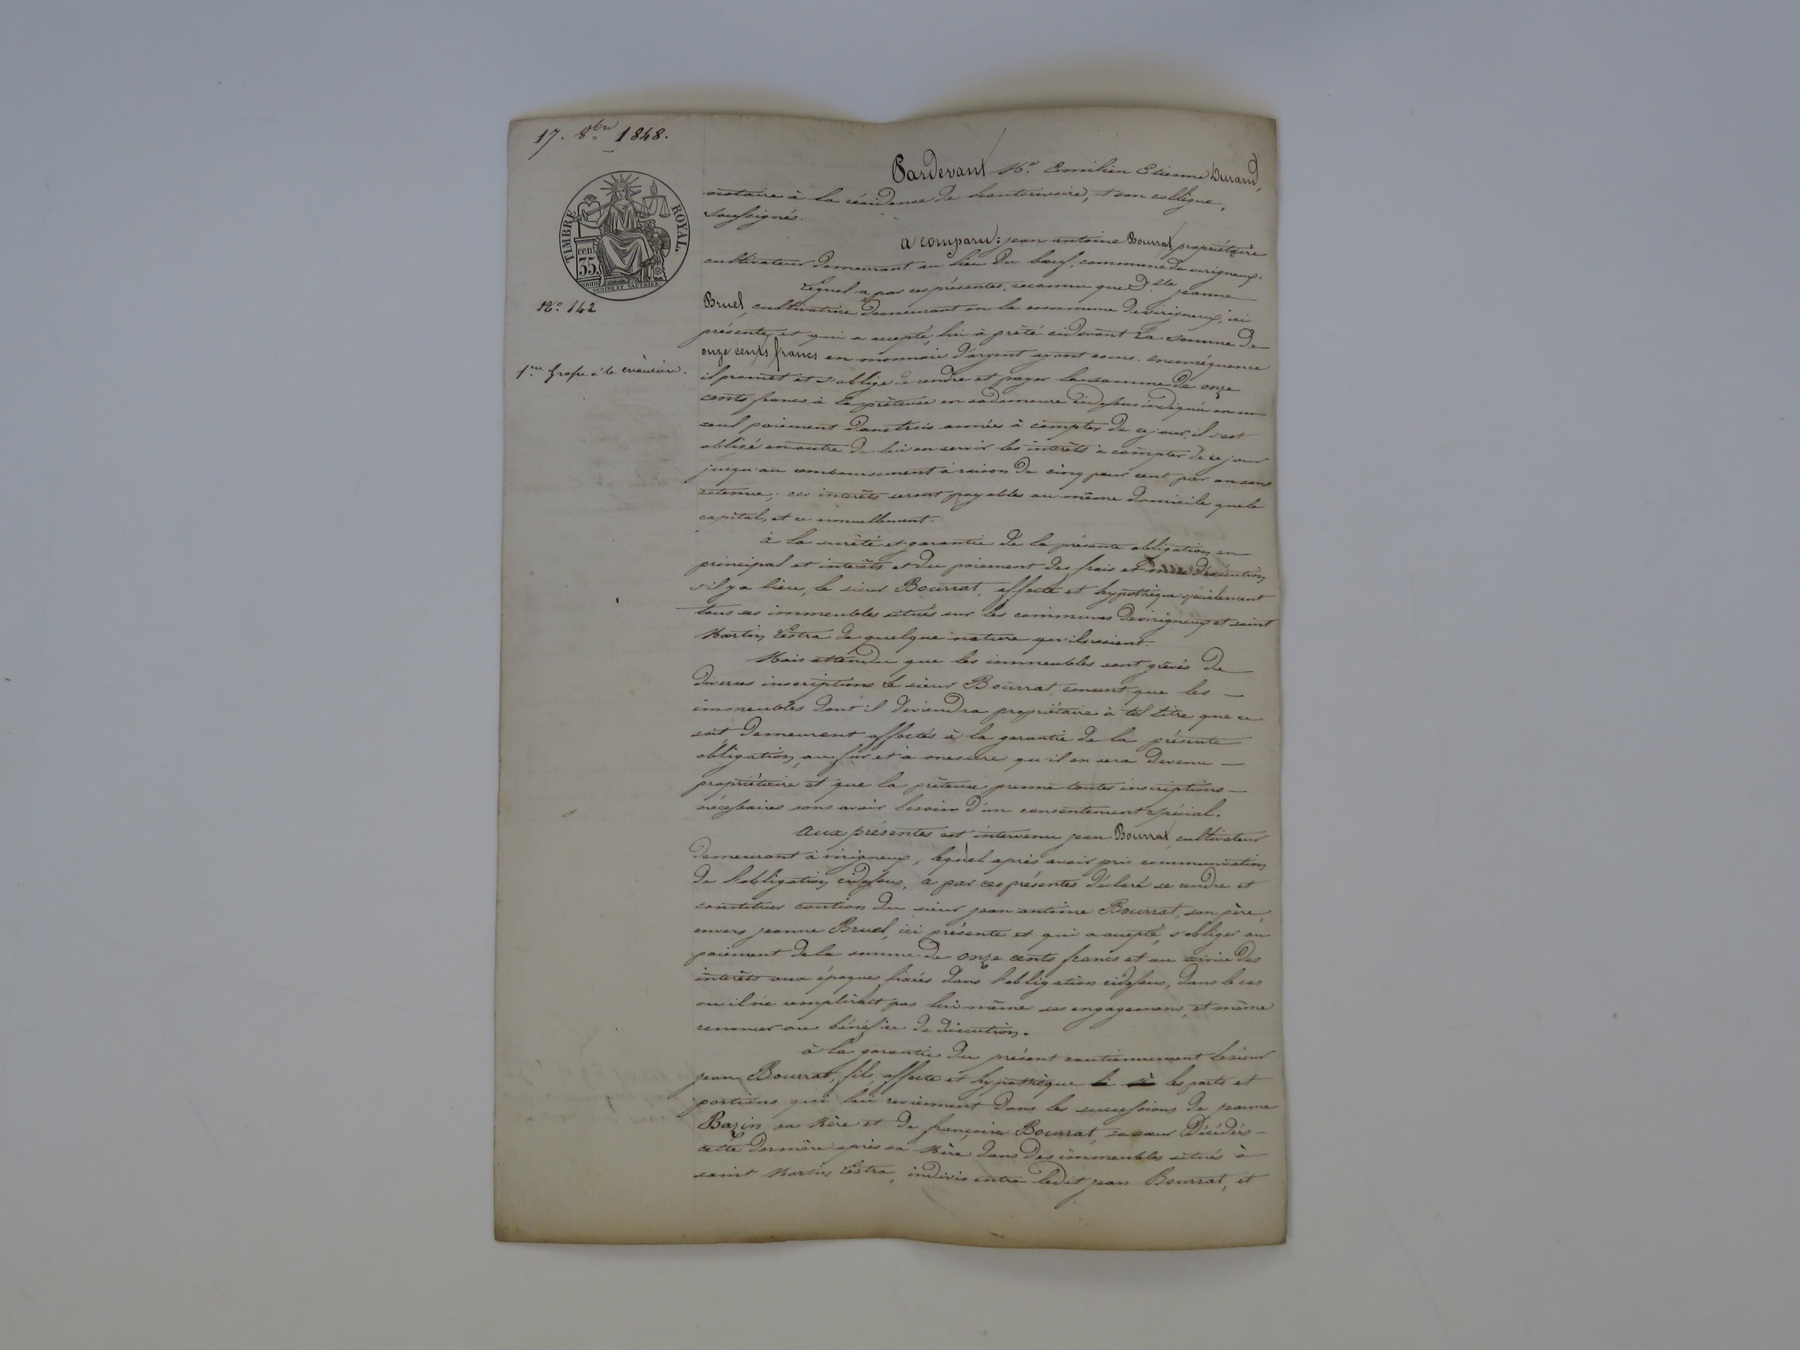 17. 8bre 1848.
TIMBRE ROYAL.
cen.
35.
No. 142
1ere Grosse à la créancière.
Pardevant Me. Emilien Etienne Durand,
notaire à la résidence de hauterivoire, & son collègue,
soussignés.
a comparu: jean antoine Bourrat propriétaire
cultivateur demeurant au lieu du bœuf, commune de virigneux.
Lequel a par ces présentes, reconnu que Dlle jeanne
Bruel, cultivatrice demeurant en la commune de virigneux, ici
présente, et qui a accepté, lui à prêté cidevant la somme de
onze cents francs en monnaie d'argent ayant cours. Enconséquence
il promet et s'oblige de rendre et payer la somme de onze
cents francs à la prêteuse en sa demeure cidessus indiquée en un
seul paiement dans trois années à compter de ce jour, il s'est
obligé en outre de lui en servir les intérêts à compter de ce jour
jusqu'au remboursement à raison de cinq pour cent par an sans
retenue; ces intérêts seront payables au même domicile que le
capital, et ce annuellement.
à la sureté et garantie de la présente obligation en
principal et intérêts et du paiement des frais et mise d'exécution
s'il y a lieu, le sieur Bourrat, affecte et hypothèque spécialement
tous ses immeubles situés sur les communes de virigneux et saint
Martin Lestra de quelque nature qu'ils soient.
Mais attendu que les immeubles sont grêvés de
diverses inscriptions le sieur Bourrat, consent que les
immeubles dont il deviendra propriétaire à tel titre que ce
soit demeurent affectés à la garantie de la présente
obligation, au fur et à mesure qu'il en sera devenu
propriétaire et que la prêteuse prenne toutes inscriptions
nécessaires sans avoir besoin d'un consentement spécial.
Aux présentes est intervenu jean Bourrat, cultivateur
demeurant à virigneux, lequel après avoir pris communication
de l'obligation cidessus, a par ces présentes déclaré se rendre et
constituer caution du sieur jean antoine Bourrat, son père,
envers jeanne Bruel, ici présente et qui a accepté, s'obliger au
paiement de la somme de onze cents francs et au service des
intérêts aux époques fixées dans l'obligation cidessus, dans le cas
ou il ne remplirait pas lui même ses engagemens, et même
renoncer au bénéfice de discution.
à la garantie du présent cautionnement le sieur
jean Bourrat, fils, affecte et hypothèque les parts et
portions qui lui reviennent dans les successions de jeanne
Bazin sa Mère et de françoise Bourrat, sa sœur décédés
cette dernière après sa Mère dans des immeubles situés à
saint Martin Lestra, indivis entre ledit jean Bourrat, et